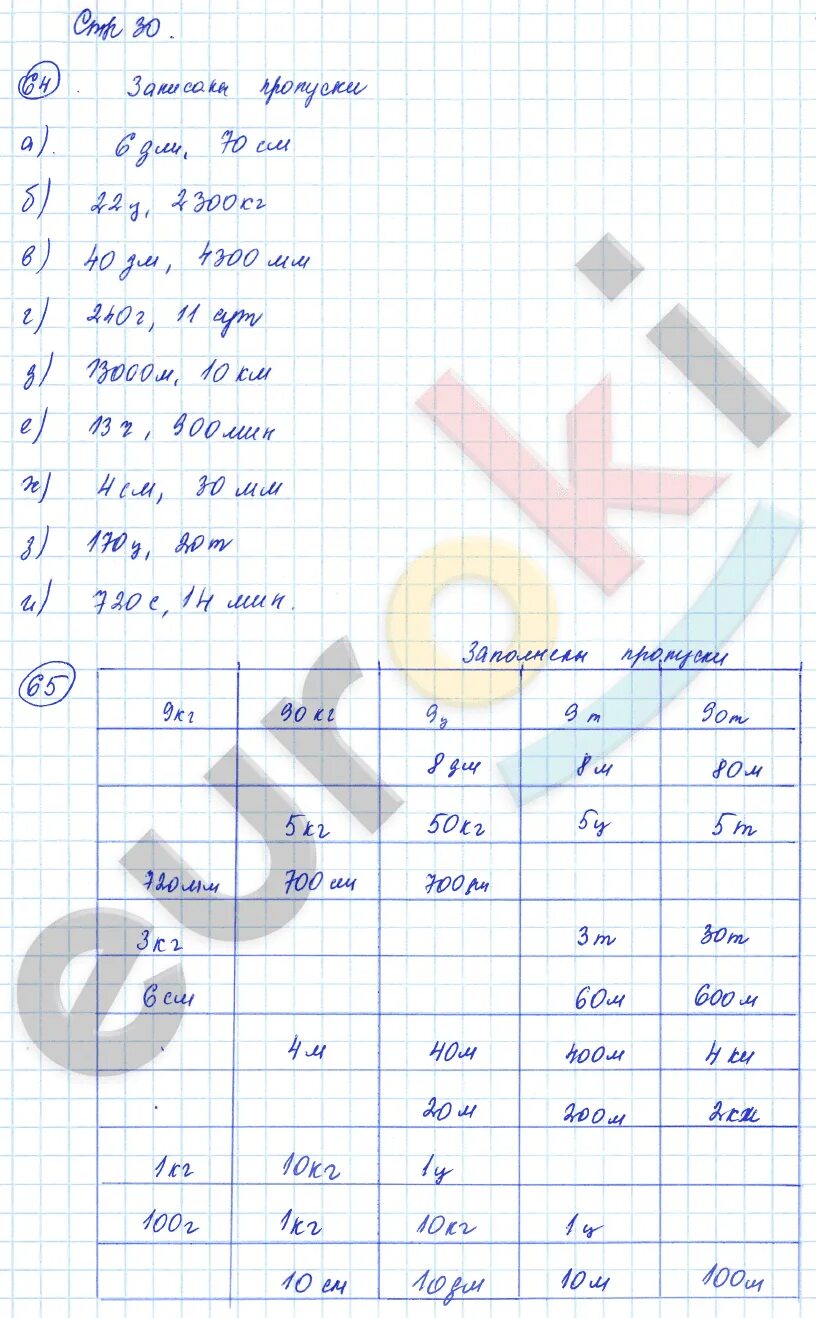 Стр 30.
64. Записаны пропуски
а). 6 дм, 70 см
б) 22ц, 2300кг
в) 40 дм, 4300 мм
г) 240г, 11 сут
д) 13000м, 10 км
е) 13г, 900мин
ж) 4 см, 30 мм
з) 170ц, 20т
и) 720с, 14 мин.
65 Заполнены пропуски
9кг 90 кг 9ц 9т 90т
8дм 8м 80м
5кг 50кг 5ц 5т
720мм 700см
3кг 3т 30т
6см 60м 600м
4м 40м 400м 4км
20м 200м 2км
1кг 10кг 1ц
100г 1кг 10кг 1ц
10см 10дм 10м 100м
euroki